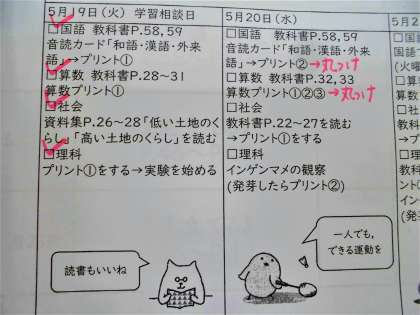 5月19日(火) 学習相談日
□国語 教科書P.58,59
音読カード「和語・漢語・外来
語」→プリント①
□算数 教科書P.28~31
算数プリント①
□社会
資料集P.26~28「低い土地のく
らし」「高い土地のくらし」を読む
□理科
プリント①をする→実験を始める
読書もいいね
5月20日(水)
□国語 教科書P.58,59
音読カード「和語・漢語・外来
語」→プリント②→丸つけ
□算数 教科書P.32,33
算数プリント①②③→丸つけ
□社会
教科書P.22~27を読む
→プリント①をする
□理科
インゲンマメの観察
(発芽したらプリント②)
一人でも,
できる運動を
5月2
□国語
国語で
(火曜
□算数
算数プ
□社会